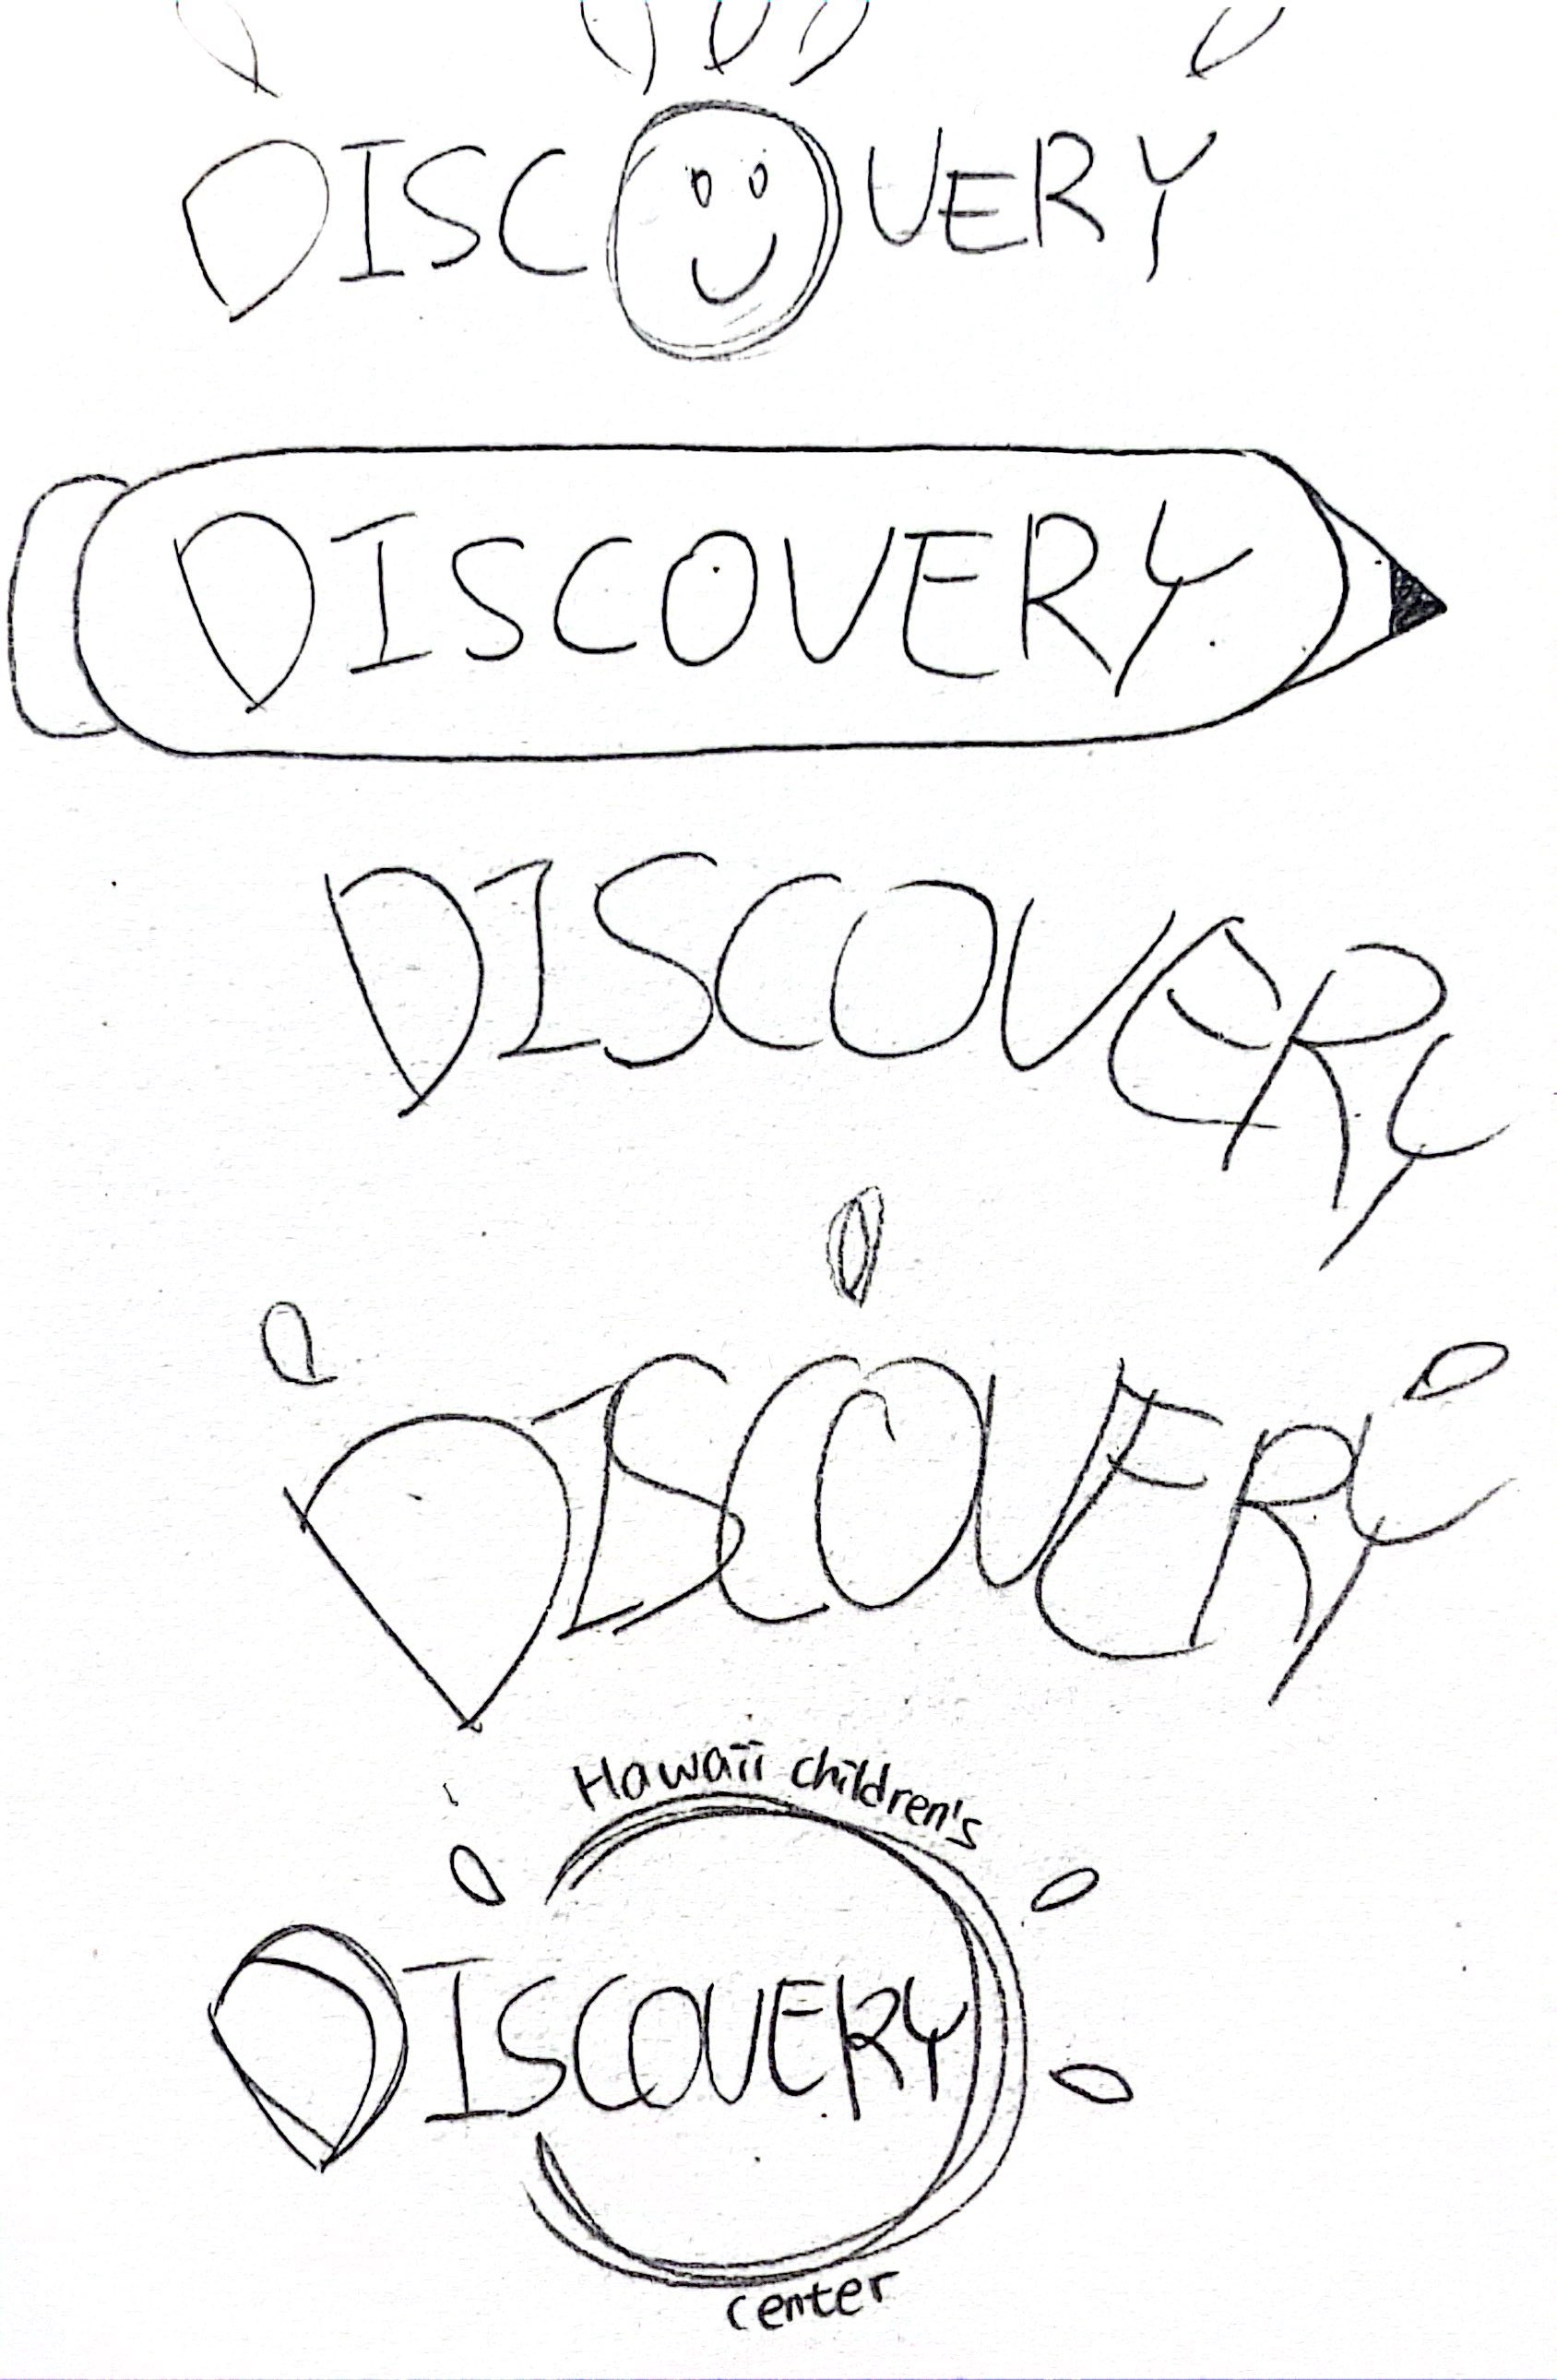 DISCOVERY
DISCOVERY
DISCOVERY
DISCOVERY
Hawaii children's
DISCOVERY
center